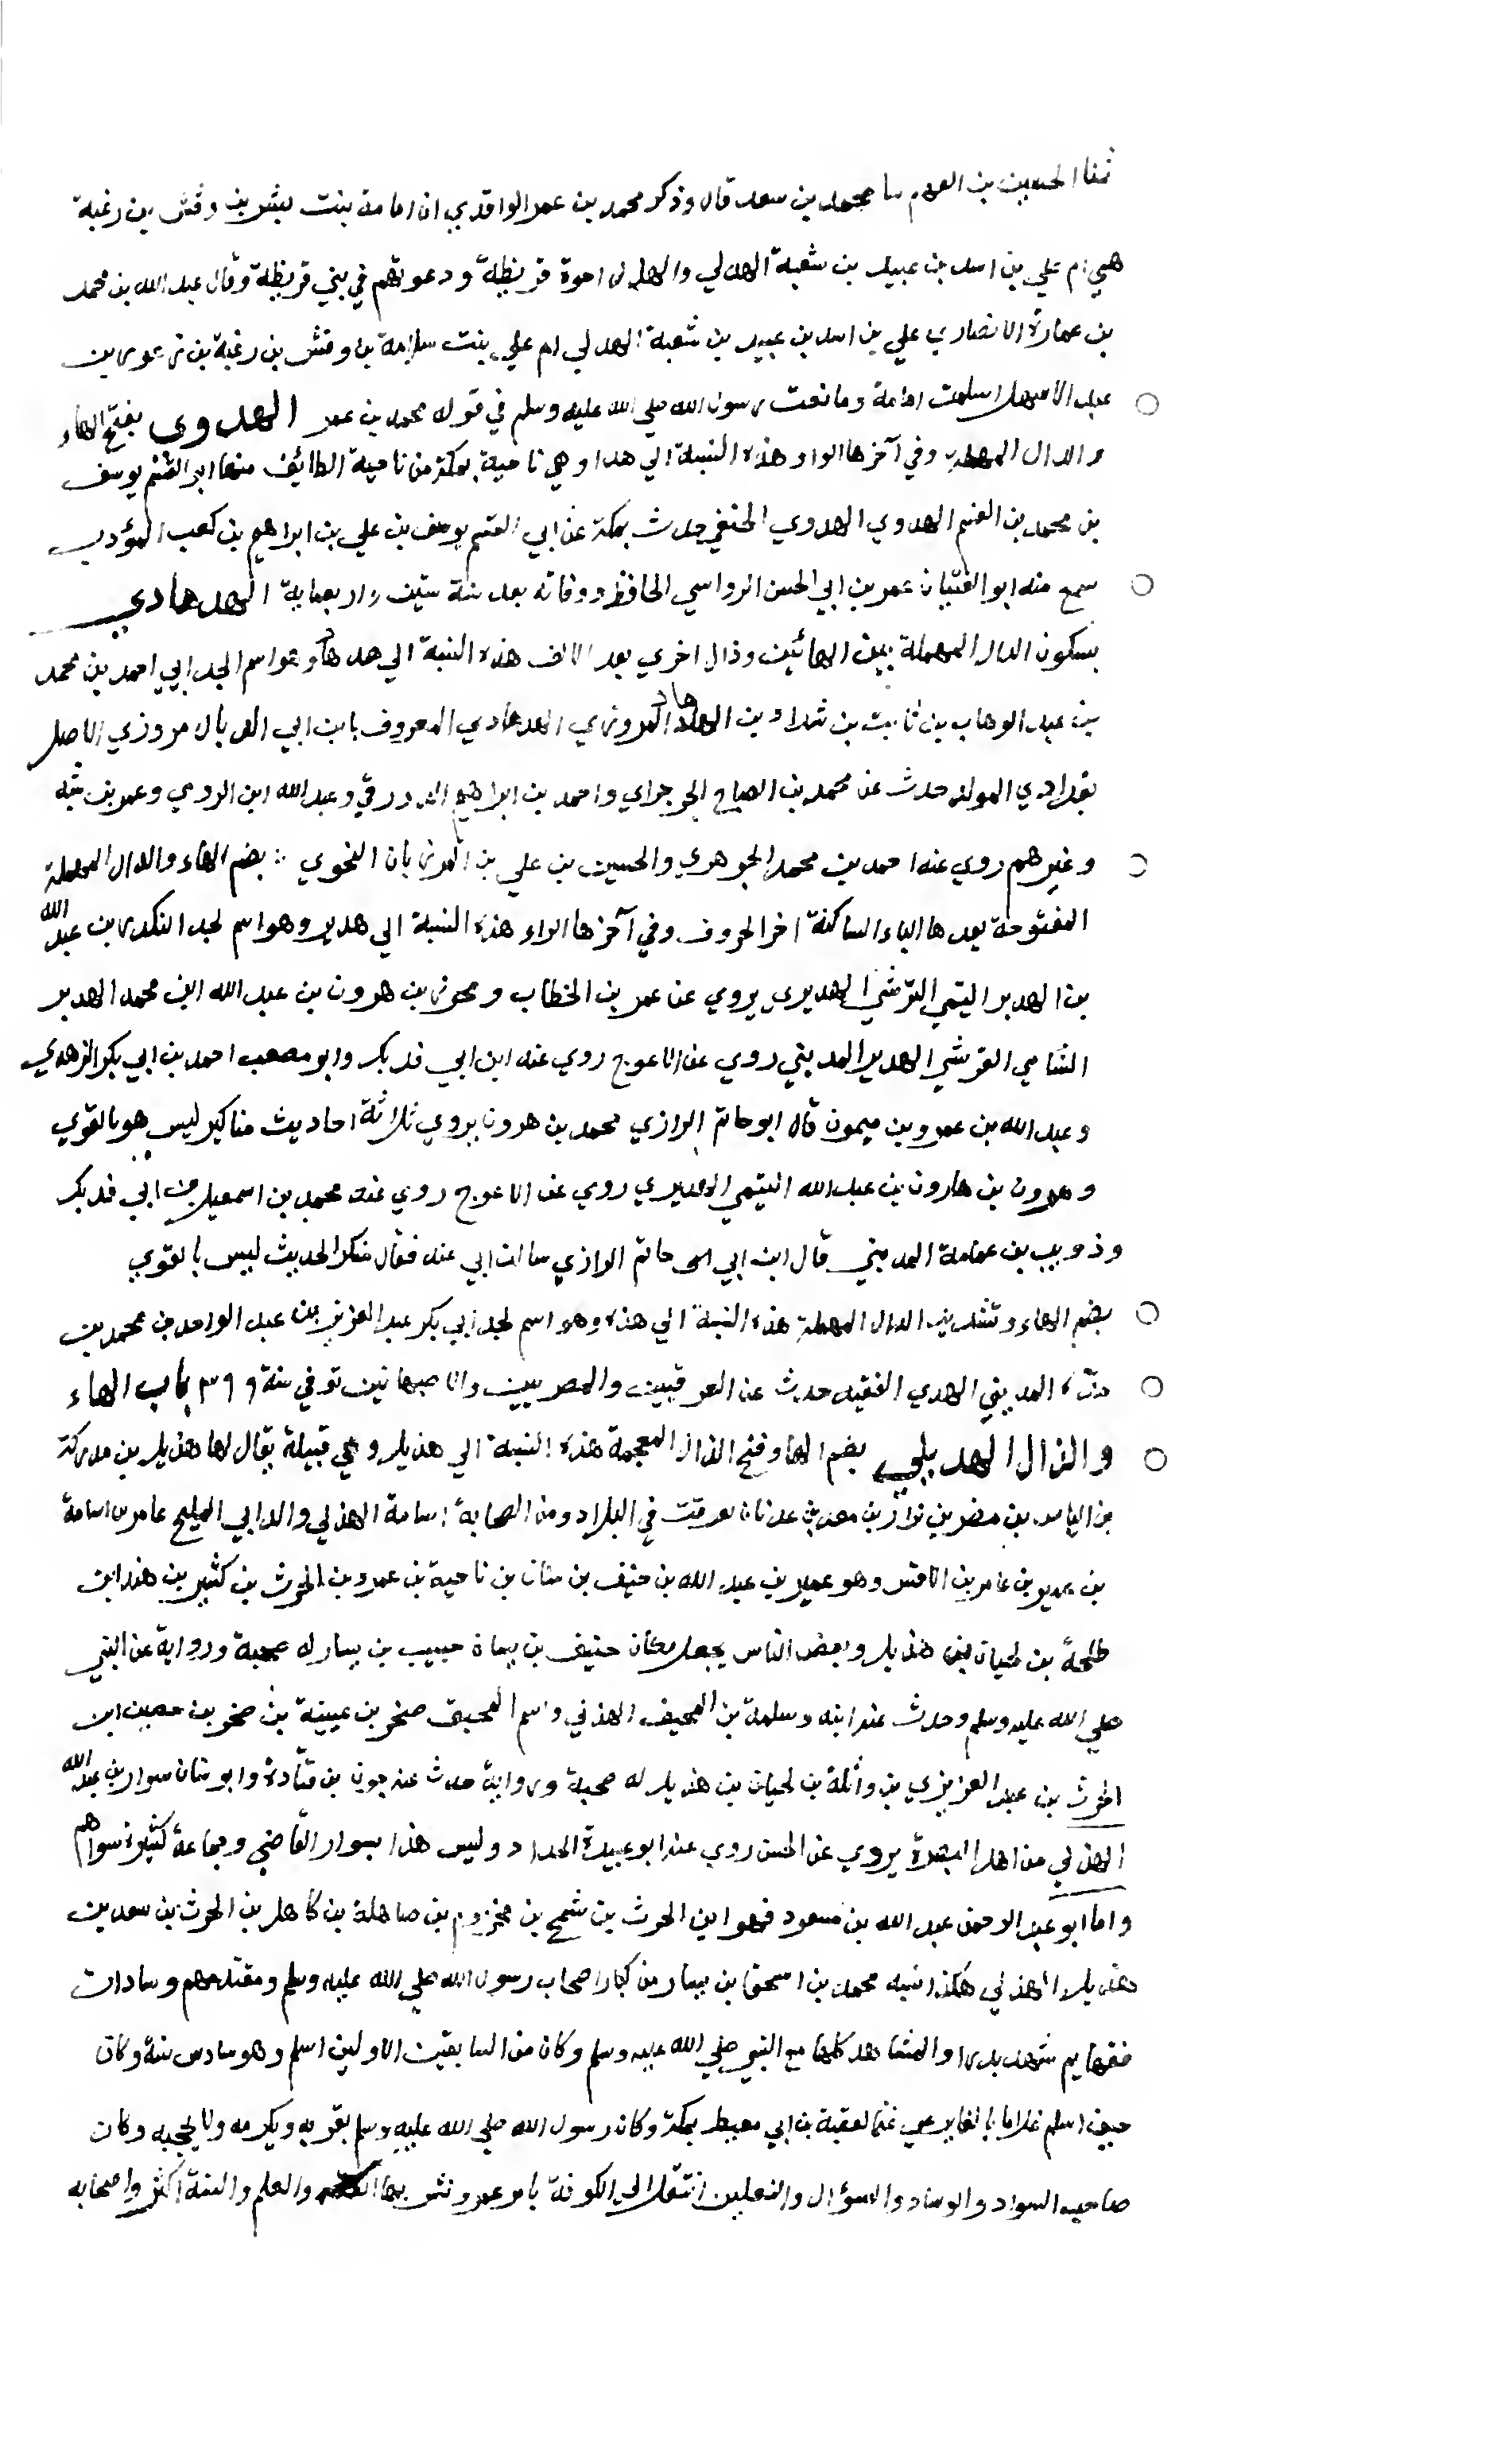 ثنا الحسين بن الفهم سا محمد بن سعد قال وذكر محمد بن عمر الواقدي ان امامة بنت بشر بن وقش بن رغبة
هي ام علي بن اسد بن عبيد بن شعبة الهدلي والهدل اخوة قريظة ودعوتهم في بني قريظة وقال عبد الله بن محمد
بن عمارة الانصاري علي بن اسد بن عبيد بن شعبة الهدلي ام علي بنت سلامة بن وقش بن رغبة بن زعورا بن
عبد الاشهل اسلمت امامة وبايعت رسول الله صلي الله عليه وسلم في قول محمد بن عمر الهدوي بفتح الهاء
والدال المهملة وفي آخرها الواو هذه النسبة الي هدا وهي ناحية بمكة من ناحية الطائف منها ابو القسم يوسف
بن محمد بن القسم الهدوي الهدوي الحنفي حدث بمكة عن ابي القسم يوسف بن علي بن ابراهيم بن كعب المؤدب
سمع منه ابو الفتيان عمر بن ابي الحسن الرواسي الحافظ ووفاته بعد سنة ستين واربعماية الهدهادي
بسكون الدال المهملة بين الهائين وذال اخري بعد الالف هذه النسبة الي هدهاد وهو اسم الجد ابي احمد بن محمد
بن عبد الوهاب بن ثابت بن شداد بن الهدهاد المروزي الهدهادي المعروف بابن ابي الذيال مروزي الاصل
بغدادي المولد حدث عن محمد بن الصباح الجرجراي واحمد بن ابراهيم الدورقي وعبد الله ابن الرومي وعمر بن شبه
وغيرهم روي عنه احمد بن محمد الجوهري والحسين بن علي بن المرزبان النحوي بضم الهاء والدال المهملة
المفتوحة بعدها الياء الساكنة اخر الحروف وفي آخرها الراء هذه النسبة الي هدير وهو اسم لجد المنكدر بن عبد الله
بن الهدير التيمي القرشي الهديري يروي عن عمر بن الخطاب ومحرز بن هرون بن عبد الله ابن محمد الهدير
الشامي القرشي الهدير المديني روي عن الاعرج روي عنه ابن ابي فديك وابو مصعب احمد بن ابي بكر الزهري
وعبد الله بن عمرو بن ميمون قال ابو حاتم الرازي محمد بن هرون يروي ثلاثة احاديث مناكير ليس هو بالقوي
وهرون بن هارون بن عبد الله التيمي الهديري روي عن الاعرج روي عنه محمد بن اسمعيل بن ابي فديك
وذويب بن عمامة المديني قال ابن ابي حاتم الرازي سالت ابي عنه فقال منكر الحديث ليس بالقوي
بضم الهاء وتشديد الدال المهملة هذه النسبة الي هذه وهو اسم لجد ابي بكر عبد العزيز بن عبد الواحد بن محمد بن
المديني الهدي الفقيه حدث عن العرقيين والمصريين والاصبهانيين توفي سنة ٣٩٩ باب الهاء
والذال الهديلي بضم الها وفتح الذال المعجمة هذه النسبة الي هذيل وهي قبيلة يقال لها هذيل بن مدركة
بن الياس بن مضر بن نزار بن معد بن عدنان تفرقت في البلاد ومن الصحابة اسامة الهذلي والد ابي المليح عامر بن اسامة
بن عمير بن عامر بن الاقيشر وهو عمير بن عبد الله بن حنيف بن سنان بن ناجية بن عمرو بن الحرث بن كثير بن هند ابن
طلحة بن لحيان بن هذيل وبعض الناس يجعل مكان حنيف بن يساة حبيب بن يسار له صحبة ورواية عن النبي
صلي الله عليه وسلم وحدث عنه ابنه وسلمة بن المحيف الهذلي واسم المحبق صخر بن عيينة بن صخر بن حصين ابن
الحرث بن عبد العزيزي بن وائلة بن لحيان بن هذيل له صحبة ورواية حدث عنه جون بن قتادة وابو سنان سوار بن عبد الله
الهذلي من اهل البصرة يروي عن الحسن روي عنه ابو عبيدة الحداد وليس هذا بسوار القاضي وجماعة كثيرة سواهم
واما ابو عبد الرحمن عبد الله بن مسعود فهو ابن الحرث بن شمخ بن مخزوم بن صاهلة بن كاهل بن الحرث بن سعد بن
هذيل الهذلي هكذا نسبه محمد بن اسحق بن يسار من كبار اصحاب رسول الله صلي الله عليه وسلم ومقدمهم وسادات
فقهايهم شهد بدرا والمشاهد كلها مع النبي صلي الله عليه وسلم وكان من السابقين الاولين اسلم وهو سادس ستة وكان
حين اسلم غلاما يافعا يرعي غنما لعقبة بن ابي معيط بمكة وكان رسول الله صلي الله عليه وسلم يقربه ويكرمه ولا يحجبه وكان
صاحب السواد والوساد والسؤال والنعلين انتقل الي الكوفة بامر عمر ونشر بها والعلم والسنة اكثر واصحابه